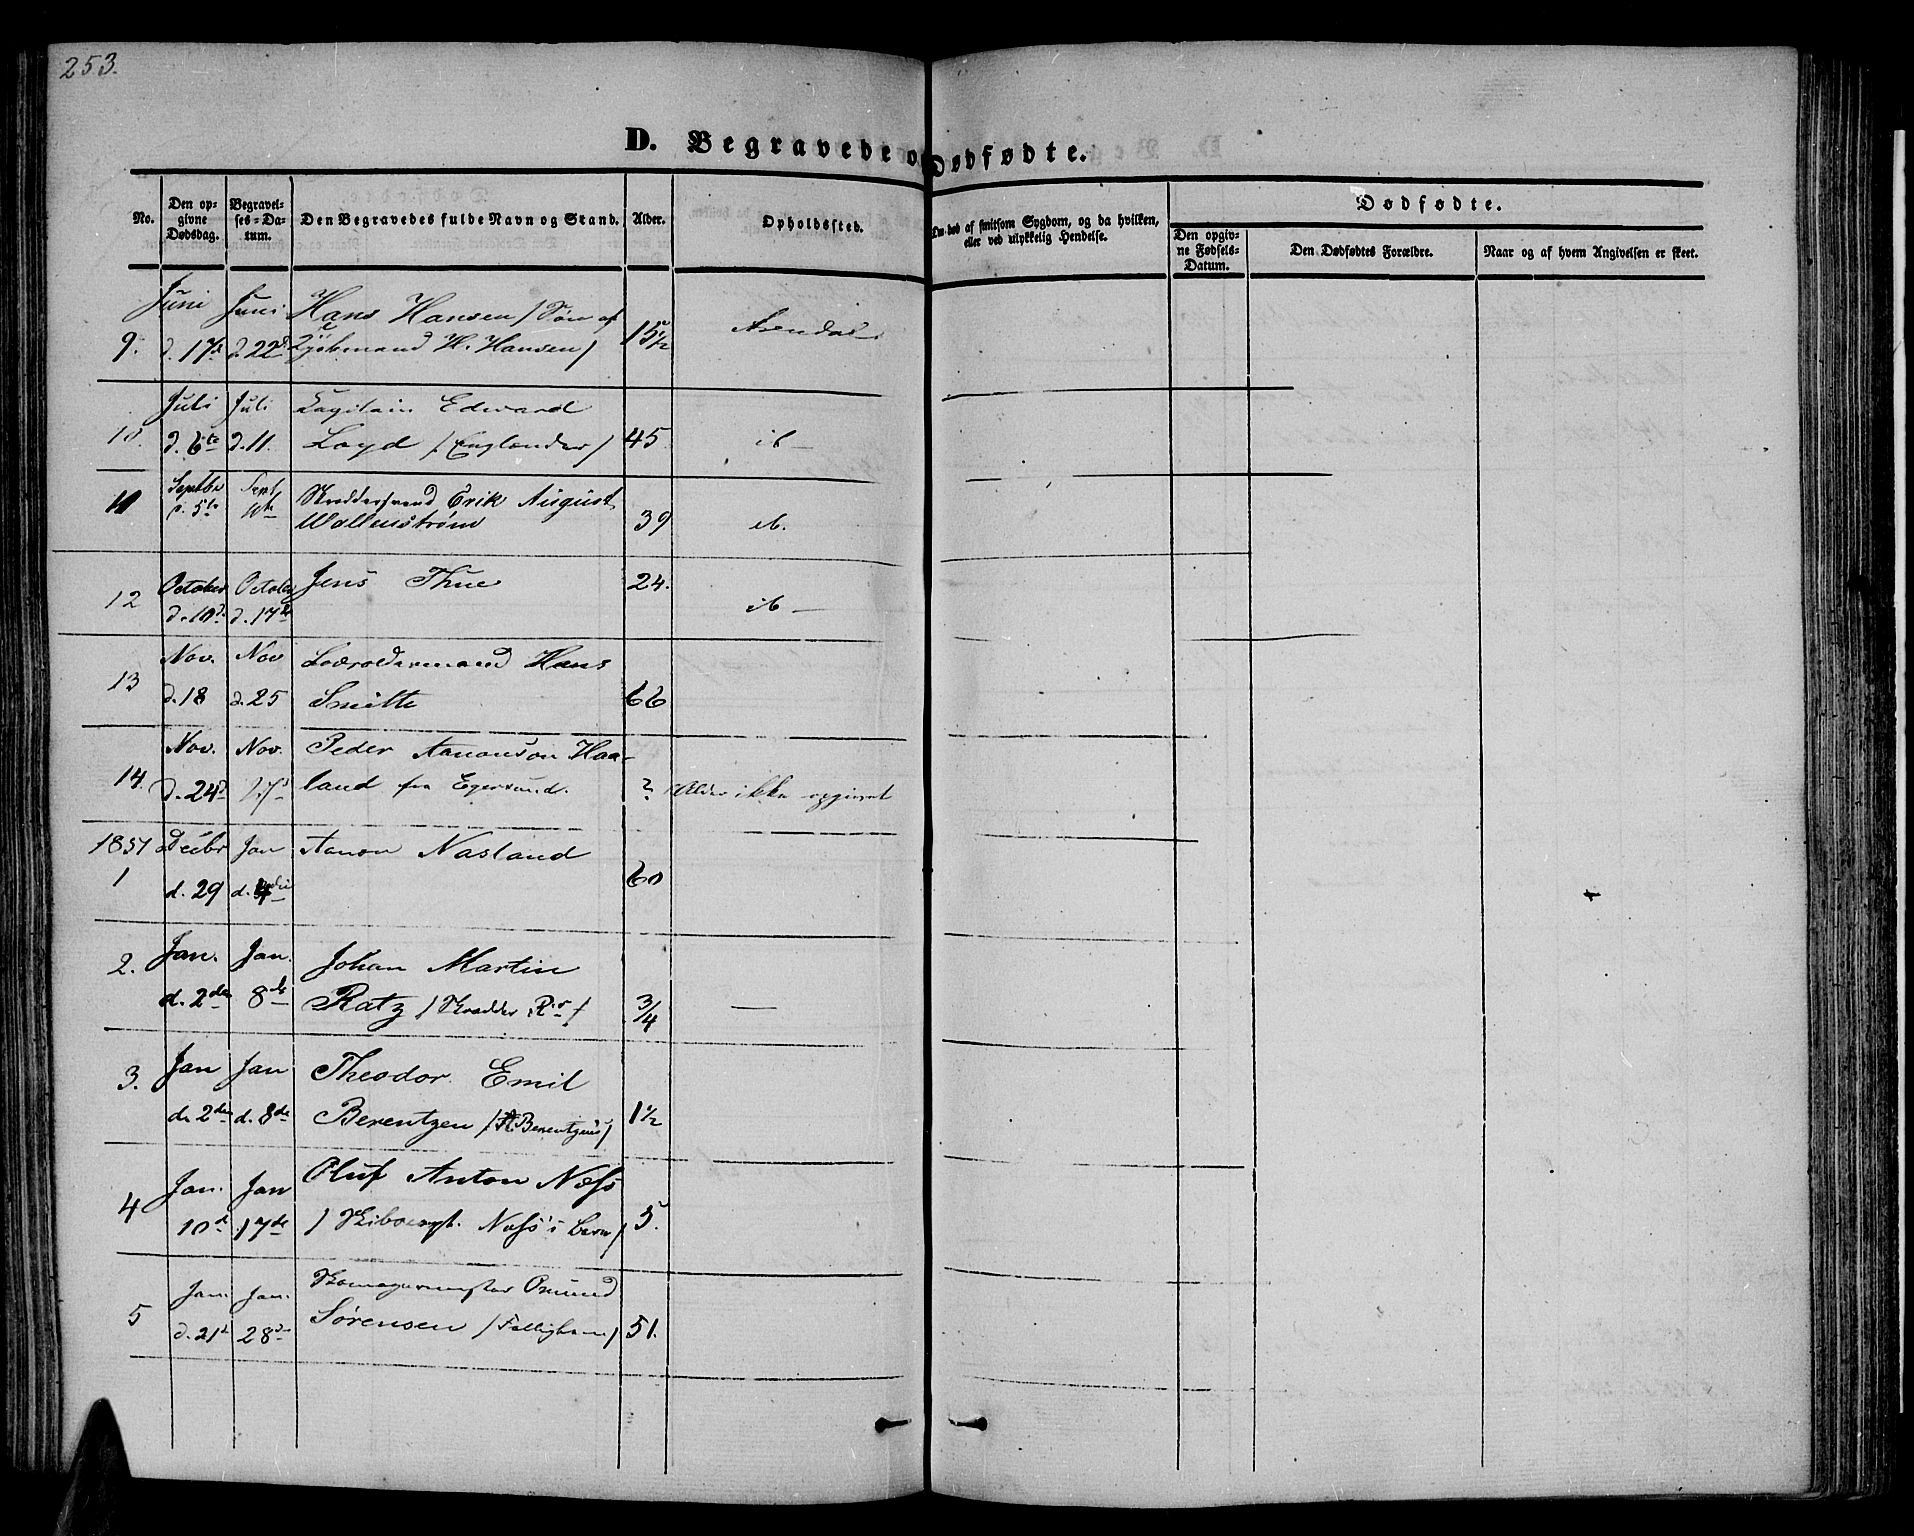 253.
D. Begravede o Dødfødte.
No.
Den opgivne Dødsdag.
Begravelses-Datum.
Den Begravedes fulde Navn og Stand.
Alder.
Opholdssted.
død af smitsom Sygdom, og da hvilken, eller ved ulykkelig Hendelse.
Dødfødte.
Den opgivne Fødsels-Datum.
Den Dødfødtes Forældre.
Naar og af hvem Angivelsen er skeet.
Juni Juni Hans Hansen / Søn af
9. d. 17de d. 22d H. Hansen / 15 1/2 Arendal
Juli Juli Capitain Edward
10. d. 6te d. 11. Loyd / Englænder / 45 ib –
Septbr Sept Skreddersvend Erik August
11 d. 5te 10de Wallenstrøm 39 ib.
October October Jens Thue 24.
12 d. 10d. d. 17de ib –
Nov. Nov Hans
13 d. 18 d. 25 Smitte 66
Nov. Nov. Peder Aanonson Haa-
14. d. 24d 27d land fra Egersund. ? Alder ikke opgivet
1851 Decbr Jan Aanon Nasland
1 d. 29 d. 4 60
Jan. Jan. Johan Martin
2. d. 2den 8de Ratz / Skrædder R. / 3/4 —
Jan Jan Theodor Emil
3. d. 2den d. 8de Berentzen / Berentzens / 1 1/2
Jan. Jan Oluf Anton Næss
4 10de 17de / Næss's barn / 5.
Jan. Jan. Skomagermester Omund
5 d. 21d 28de Sørensen / Fattiglem / 51.